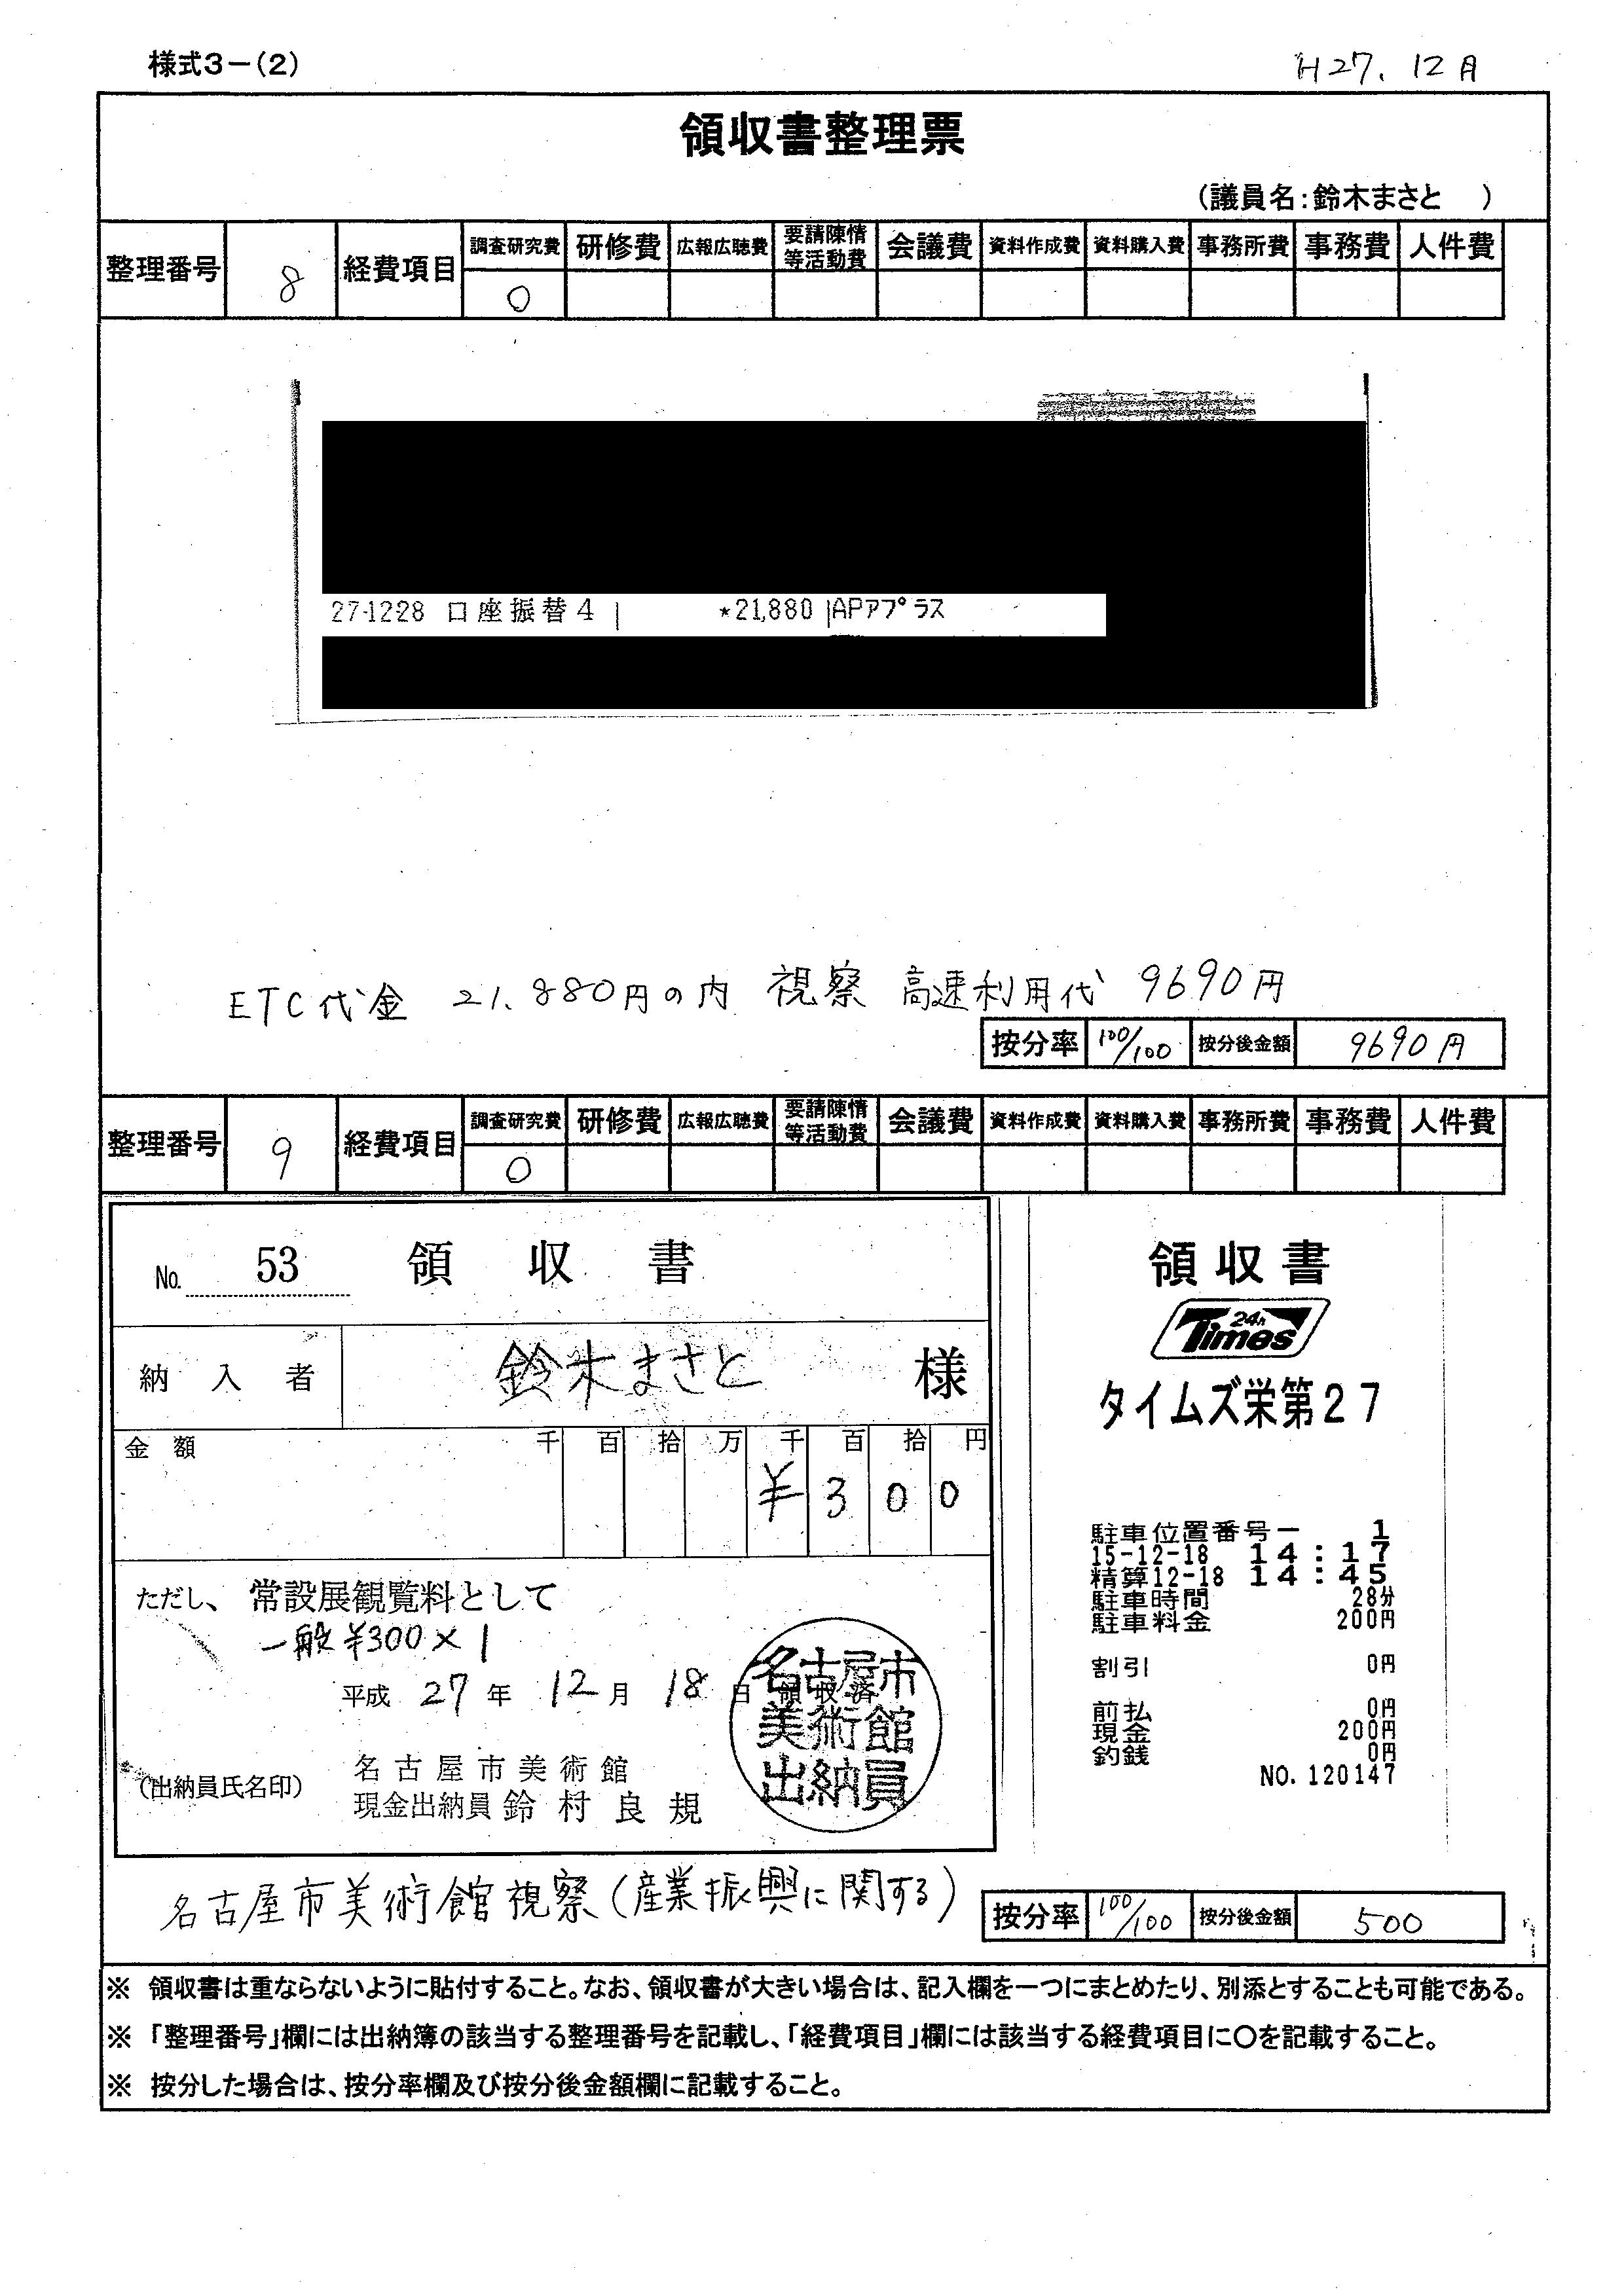 様式3－(2)
H27.12月
領収書整理票
(議員名:鈴木まさと　)
整理番号 8 経費項目 調査研究費 研修費 広報広聴費 要請陳情等活動費 会議費 資料作成費 資料購入費 事務所費 事務費 人件費
○
27-12-28 口座振替4 *21,880 APアプラス
ETC代金 21.880円の内 視察 高速利用代 9690円
按分率 100/100 按分後金額 9690円
整理番号 9 経費項目 調査研究費 研修費 広報広聴費 要請陳情等活動費 会議費 資料作成費 資料購入費 事務所費 事務費 人件費
○
No. 53 領収書
納入者 鈴木まさと 様
金額 千 百 拾 万 千 百 拾 円
¥300
ただし、常設展観覧料として
一般¥300×1
平成27年12月18日領収済
(出納員氏名印)
名古屋市美術館
現金出納員 鈴村良規
名古屋市
美術館
出納員
領収書
24h Times
タイムズ栄第27
駐車位置番号－ 1
15-12-18 14:17
精算12-18 14:45
駐車時間 28分
駐車料金 200円
割引 0円
前払 0円
現金 200円
釣銭 0円
NO.120147
名古屋市美術館視察(産業振興に関する)
按分率 100/100 按分後金額 500
※ 領収書は重ならないように貼付すること。なお、領収書が大きい場合は、記入欄を一つにまとめたり、別添とすることも可能である。
※ 「整理番号」欄には出納簿の該当する整理番号を記載し、「経費項目」欄には該当する経費項目に○を記載すること。
※ 按分した場合は、按分率欄及び按分後金額欄に記載すること。